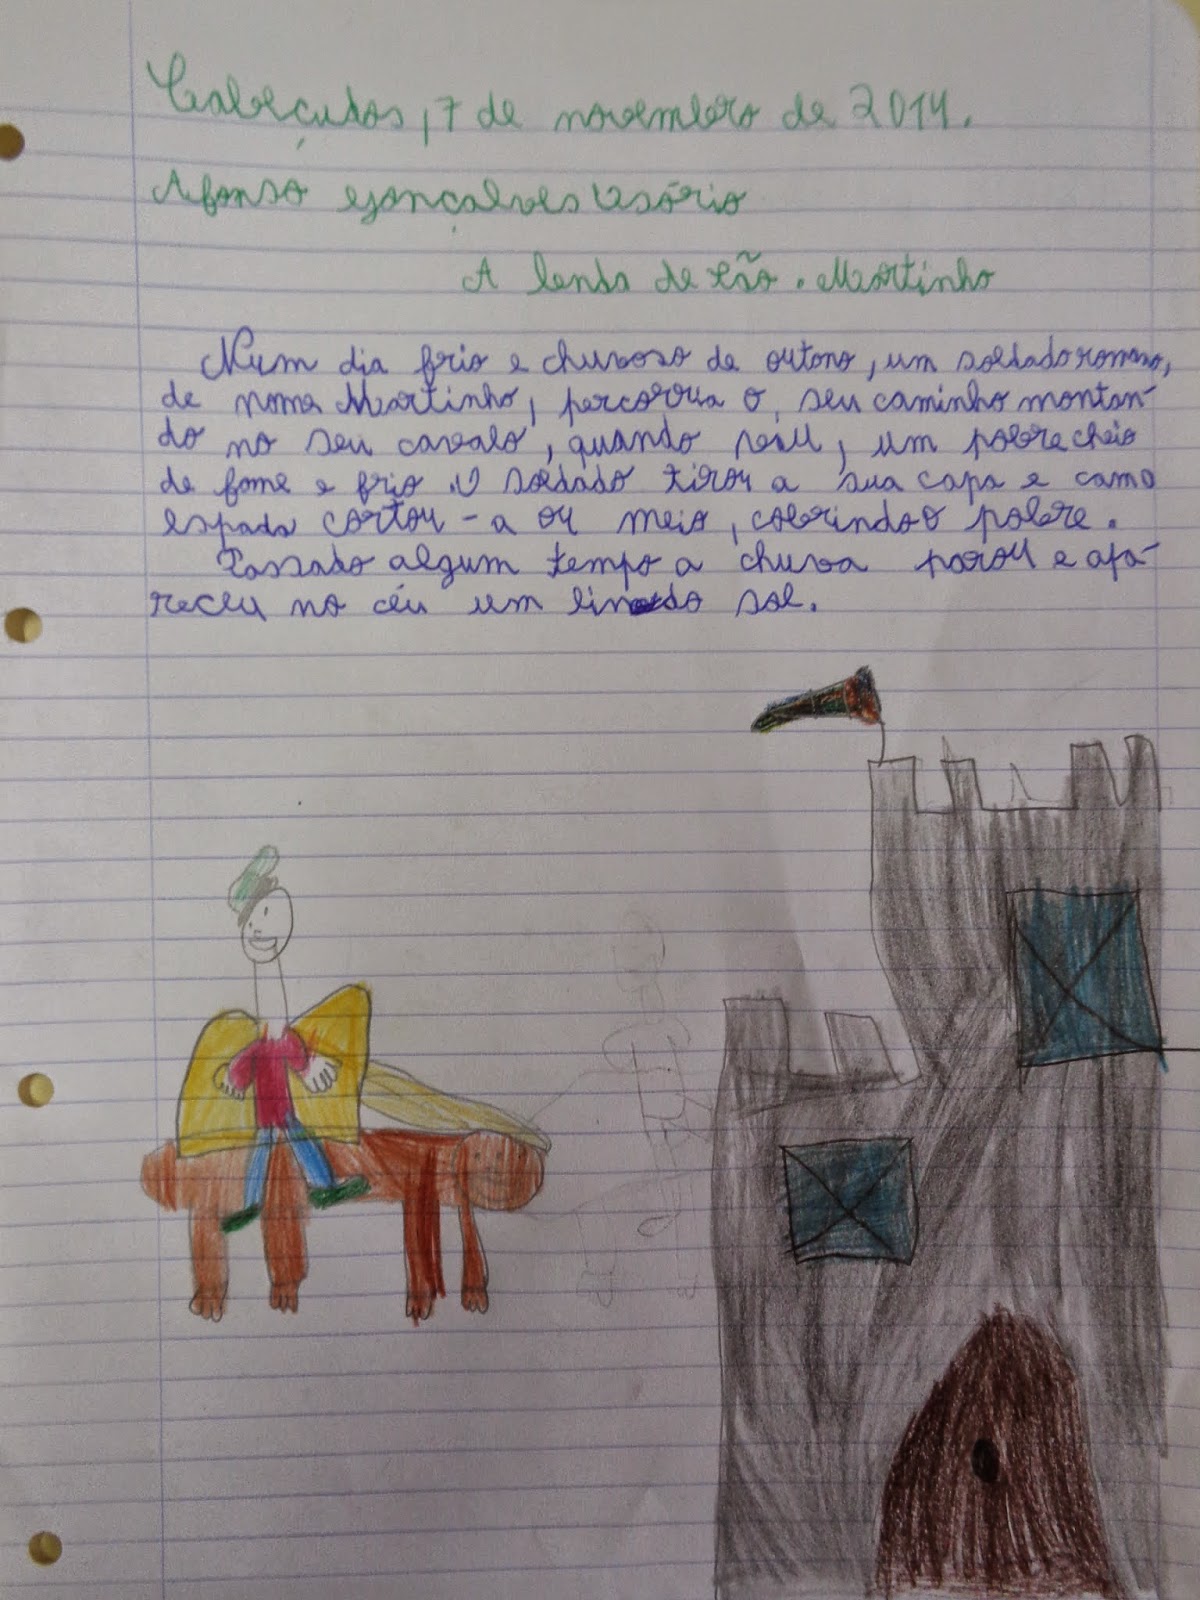 Cabeçudos, 7 de novembro de 2014.
Afonso Gonçalves Osório
A lenda de São. Martinho
Num dia frio e chuvoso de outono, um soldado romano,
de nome Martinho, percorria o seu caminho montan-
do no seu cavalo, quando viu, um pobre cheio
de fome e frio. O soldado tirou a sua capa e com a
espada cortou-a ou meio, cobrindo o pobre.
Passado algum tempo a chuva parou e apa-
receu no céu um lindo sol.